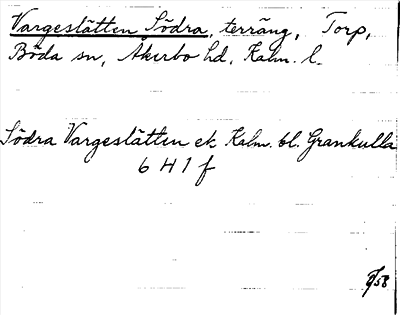 Vargeslätten Södra, terräng, Torp,
Böda sn, Åkerbo hd, Kalm. l.
Södra Vargeslätten ek. Kalm. bl. Grankulla
6 H 1 f